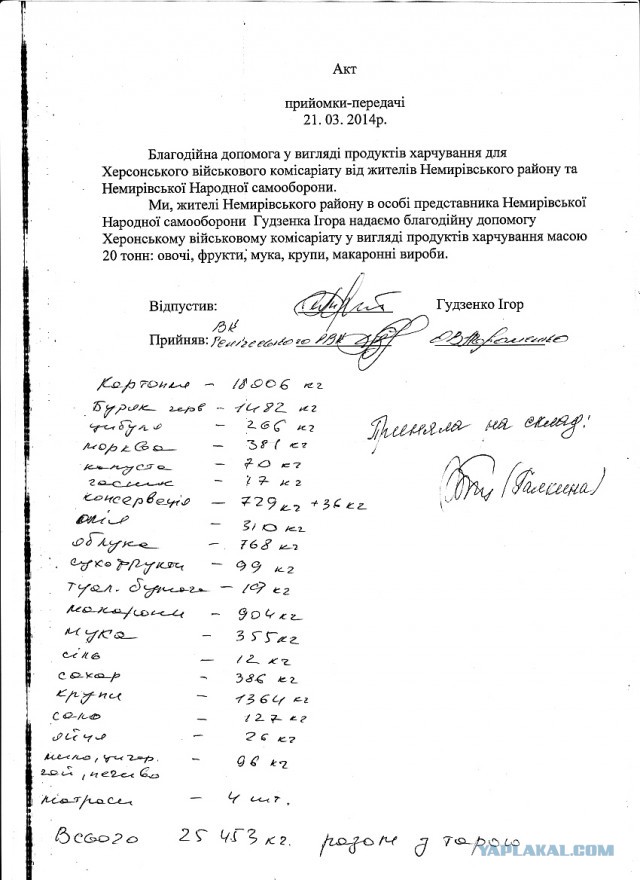 Акт
прийомки-передачі
21. 03. 2014р.
Благодійна допомога у вигляді продуктів харчування для
Херсонського військового комісаріату від жителів Немирівського району та
Немирівської Народної самооборони.
Ми, жителі Немирівського району в особі представника Немирівської
Народної самооборони Гудзенка Ігора надаємо благодійну допомогу
Херонському військовому комісаріату у вигляді продуктів харчування масою
20 тонн: овочі, фрукти, мука, крупи, макаронні вироби.
Відпустив: Гудзенко Ігор
ВК
Прийняв: Генічеського РВК
Картопля – 18006 кг
Буряк черв – 1482 кг
цибуля – 266 кг
морква – 381 кг
капуста – 70 кг
часник – 17 кг
консервація – 729 кг + 36 кг
олія – 310 кг
яблука – 768 кг
сухофрукти – 99 кг
туал. бумага – 19 кг
макарони – 904 кг
мука – 355 кг
сіль – 12 кг
сахар – 386 кг
крупи – 1364 кг
сало – 127 кг
яйця – 26 кг
мило, цигар. – 96 кг
чай, печиво
матраси – 4 шт.
Всього 25 453 кг. разом з тарою
Приняла на склад:
(Галкина)
YAPLAKAL.COM